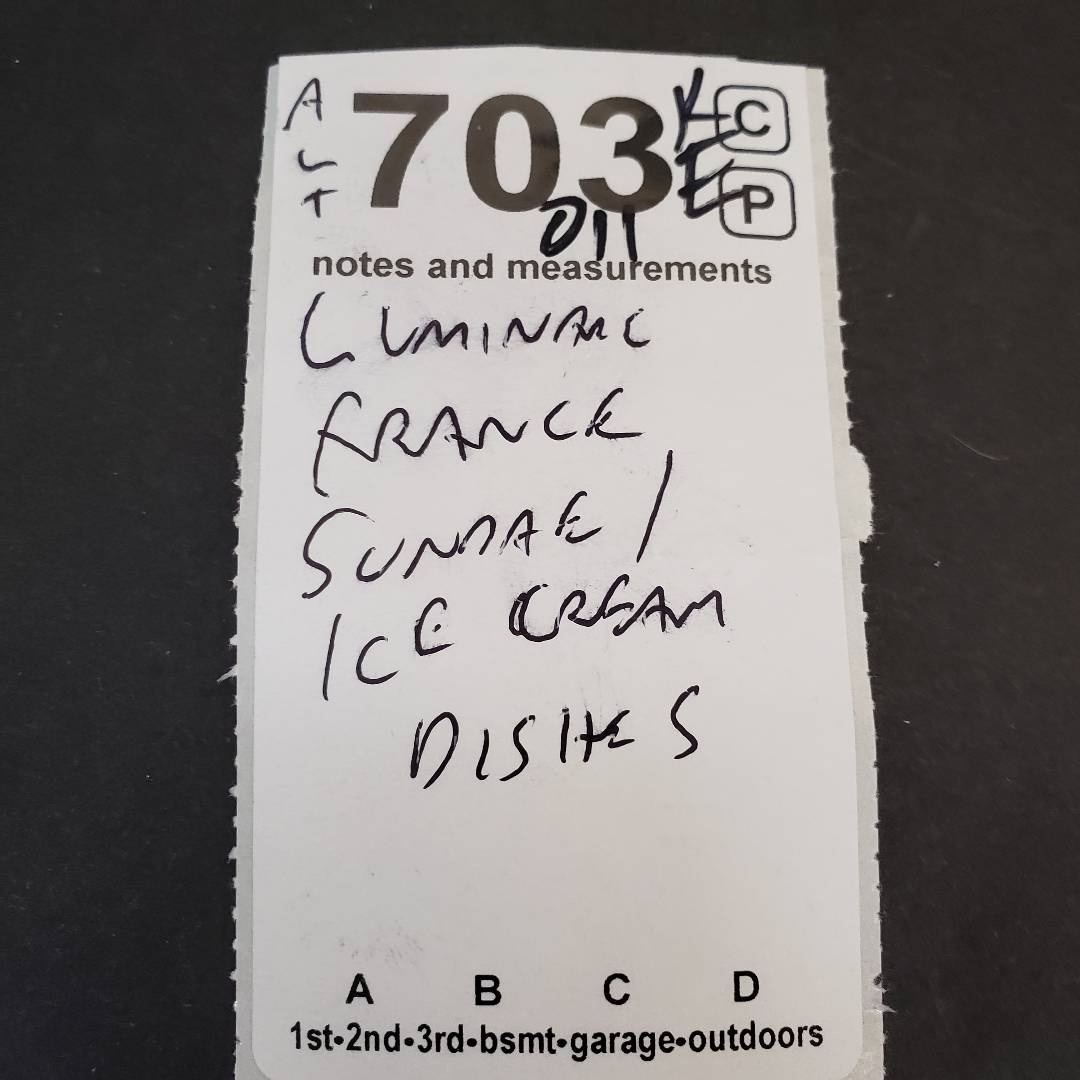 ALT 703 KE C
P
011
notes and measurements
LUMINARC
FRANCE
SUNDAE /
ICE CREAM
DISHES
A B C D
1st•2nd•3rd•bsmt•garage•outdoors